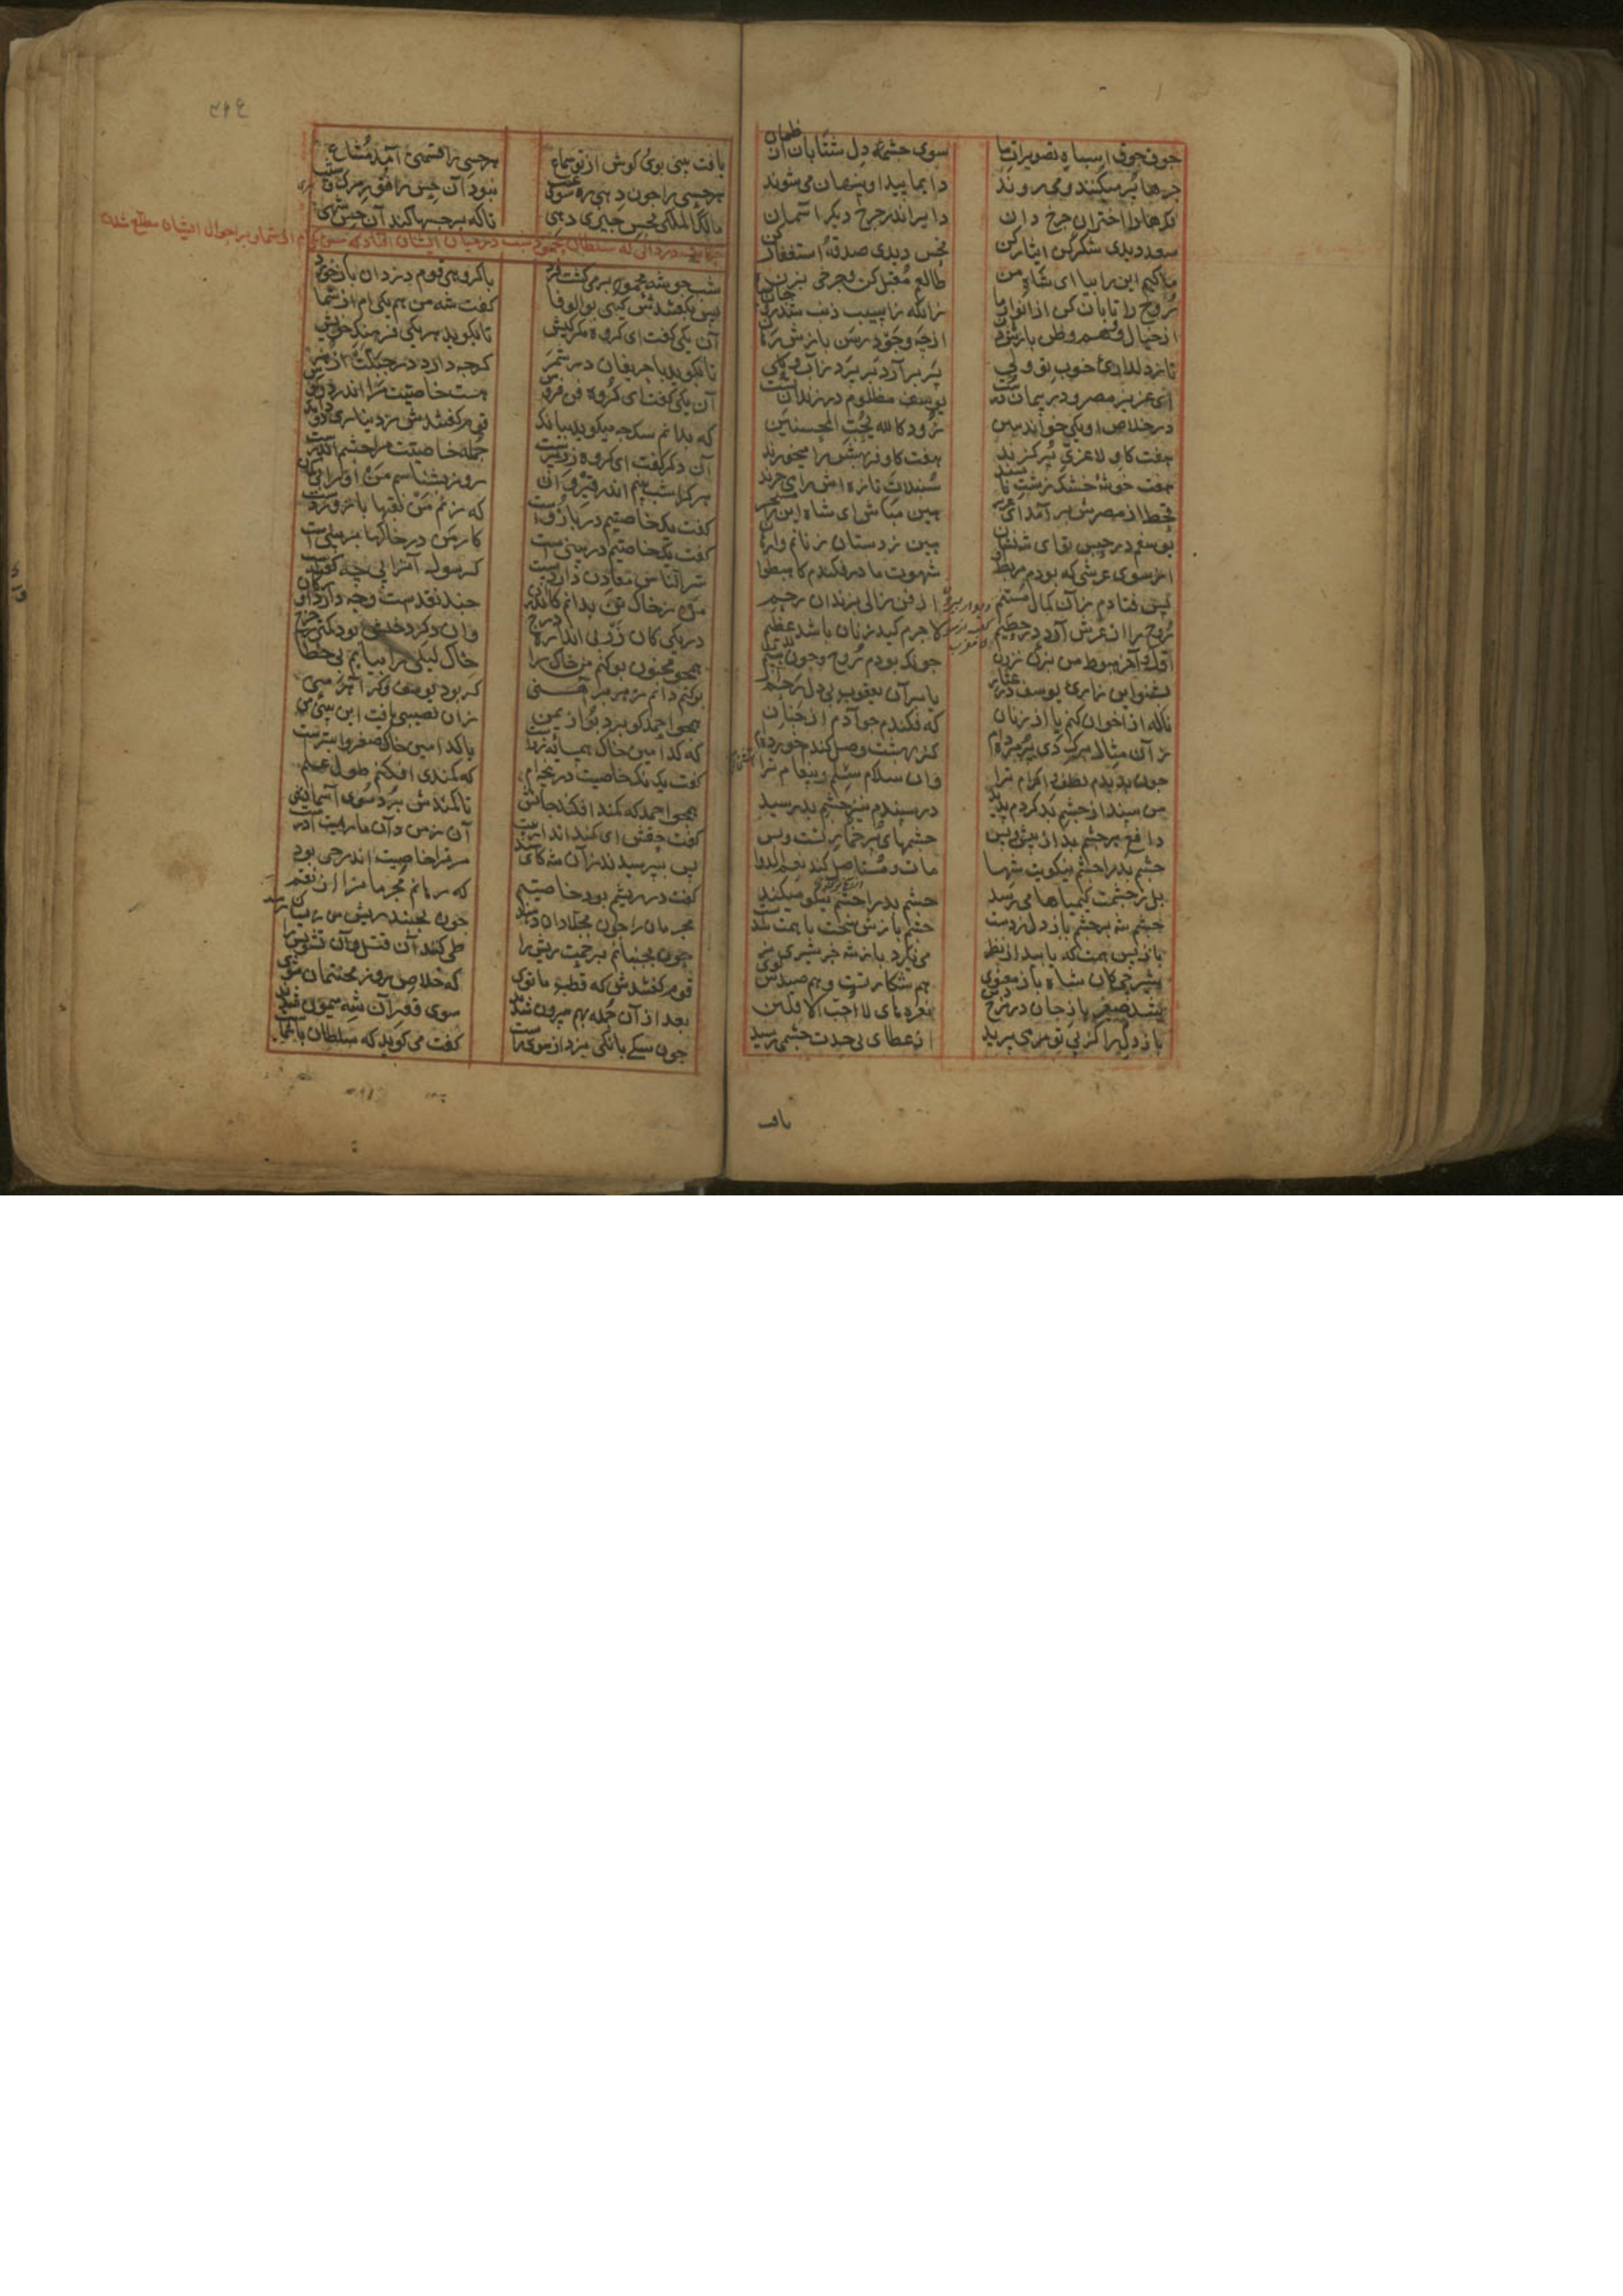 جوق جوق اسباه تصویرات ما سوی چشمهٔ دل شتابان از ظما
جرها پر میکنند و می روند دایما پیدا و پنهان می شوند
فکرها را اختران چرخ دان دایر اندر چرخ دیکر آسمان
سعد دیدی شکر کن ایثار کن نحس دیدی صدقه و استغفار کن
ما کیم این را بیا ای شاه من طالعم مقبل کن و چرخی بزن
روح را تابان کن از انوار ماه زانکه ز آسیب ذنب شد جان سیاه
از خیال و وهم و ظن بازش رهان از چه و جور رسن بازش رهان
تا ز دلداری خوب تو دلی پر برآرد بر پرد ز آب و کلی
ای عزیز مصر و در پیمان درست یوسف مظلوم در زندان تست
در خلاص او یکی خواب ببین زود کالله یحب المحسنین
هفت کاو لاغری پر کزند هفت کاو فربهش را میخورند
هفت خوشهٔ خشک زشت ناپسند سنبلات تازه اش را می چرند
قحط از مصرش بر آمد ای عزیز هین مباش ای شاه این را مستجیز
یوسفم در حبس تو ای شه نشان هین ز دستان زنانم وا رهان
از سوی عرشی که بودم مربط شهوت مادر فکندم کاهبطوا
پس فتادم زان کمال مستتم از فن زالی بزندان رحم
روح را از عرش آرد در حطیم لاجرم کید زنان باشد عظیم
اول و آخر هبوط من ز زن چونک بودم روح و چون کشتم بدن
بشنو این زاری یوسف در عثار یا بر آن یعقوب بی دل رحم آر
ناله از اخوان کنم یا از زنان که فکندم چو آدم از جنان
زان مثال برک دی پژمرده ام کز بهشت وصل کندم خورده ام
چون بدیدم لطف و اکرام ترا وان سلام سلم و پیغام ترا
من سپند از چشم بد کردم پدید در سپندم نیز چشم بد رسید
دافع هر چشم بد از پیش و پس چشمهای پر خمار تست و بس
چشم بد را چشم نیکویت شها مات و مستاصل کند نعم الدوا
بل ز چشمت کیمیاها می رسد چشم بد را چشم نیکو میکند
چشم شه بر چشم باز دل زدست چشم بازش سخت با همت شدست
تا ز بس همت که یابید از نظر می نکیرد باز شه جز شیر نر
شیر چه کان شاه باز معنوی هم شکار تست و هم صیدش توی
شد صفیر باز جان در مرج دین نعره های لا احب الافلین
باز دل را کز پی تو می پرید از عطای بی حدت چشمی رسید
یافت
یافت بینی بوی و کوش از تو سماع هر حسی را قسمتی آمد مشاع
هر حسی را چون دهی ره سوی غیب نبود آن حس را فتور مرک و شیب
مالک الملکی بحس چیزی دهی تا که بر حسها کند آن حس شهی
شب چو شه محمود بر می کشت فرد با کروهی قوم دزدان باز خورد
پس بکفتندش کیی بو الوفا کفت شه من هم یکی ام از شما
آن یکی کفت ای کروه مکر کیش تا بکوید هر یکی فرهنک خویش
تا بکوید با حریفان در سمر کو چه دارد در جبلت از هنر
آن یکی کفت ای کروه فن فروش هست خاصیت مرا اندر دو کوش
که بدانم سک چه میکوید ببانک قوم کفتندش ز دیناری دو دانک
آن دکر کفت ای کروه زر پرست جمله خاصیت مرا چشم اندرست
هر کرا شب بینم اندر قیروان روز بشناسم من او را بی کمان
کفت یک خاصیتم در بازوست که زنم من نقبها با زور دست
کفت یک خاصیتم در بینی است کار من در خاکها بو بینی است
سر الناس معادن داد دست که رسول آنرا پی چه کفته است
من ز خاک تن بدانم کاندران چند نقدست و چه دارد او ز کان
در یکی کان زر بی اندازه درج وان دکر دخلش بود کمتر ز خرج
همچو مجنون بو کنم من خاک را خاک لیلی را بیابم بی خطا
بو کنم دانم ز هر پیراهنی کر بود یوسف و کر آهرمنی
همچو احمد کو برد بو از یمن زان نصیبی یافت این بینی من
که کدامین خاک همسایه زرست یا کدامین خاک صفر و ابترست
کفت یک نک خاصیت در پنجه ام که کمندی افکنم طول علم
همچو احمد که کمند افکند جانش تا کمندش برد سوی آسمانش
کفت حقش ای کمند انداز بیت آن ز من دان ما رمیت اذ رمیت
پس بپرسیدند زان شه کای سند مر ترا خاصیت اندر چی بود
کفت در ریشم بود خاصیتم که رهانم مجرمان را از نقم
مجرمان را چون بجلادان دهند چون بجنبد ریش من زیشان رهند
چون بجنبانم برحمت ریش را طی کنند آن قتل و آن تشویش را
قوم کفتندش که قطب ما توی که خلاص روز محنتمان شوی
بعد از آن جمله بهم بیرون شدند سوی قصر آن شه میمون شدند
چون سکی بانکی بزد از سوی راست کفت می کوید که سلطان با شماست